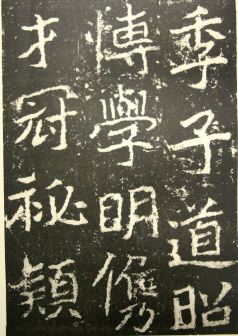 季子道昭
博學明儁
才冠秘穎